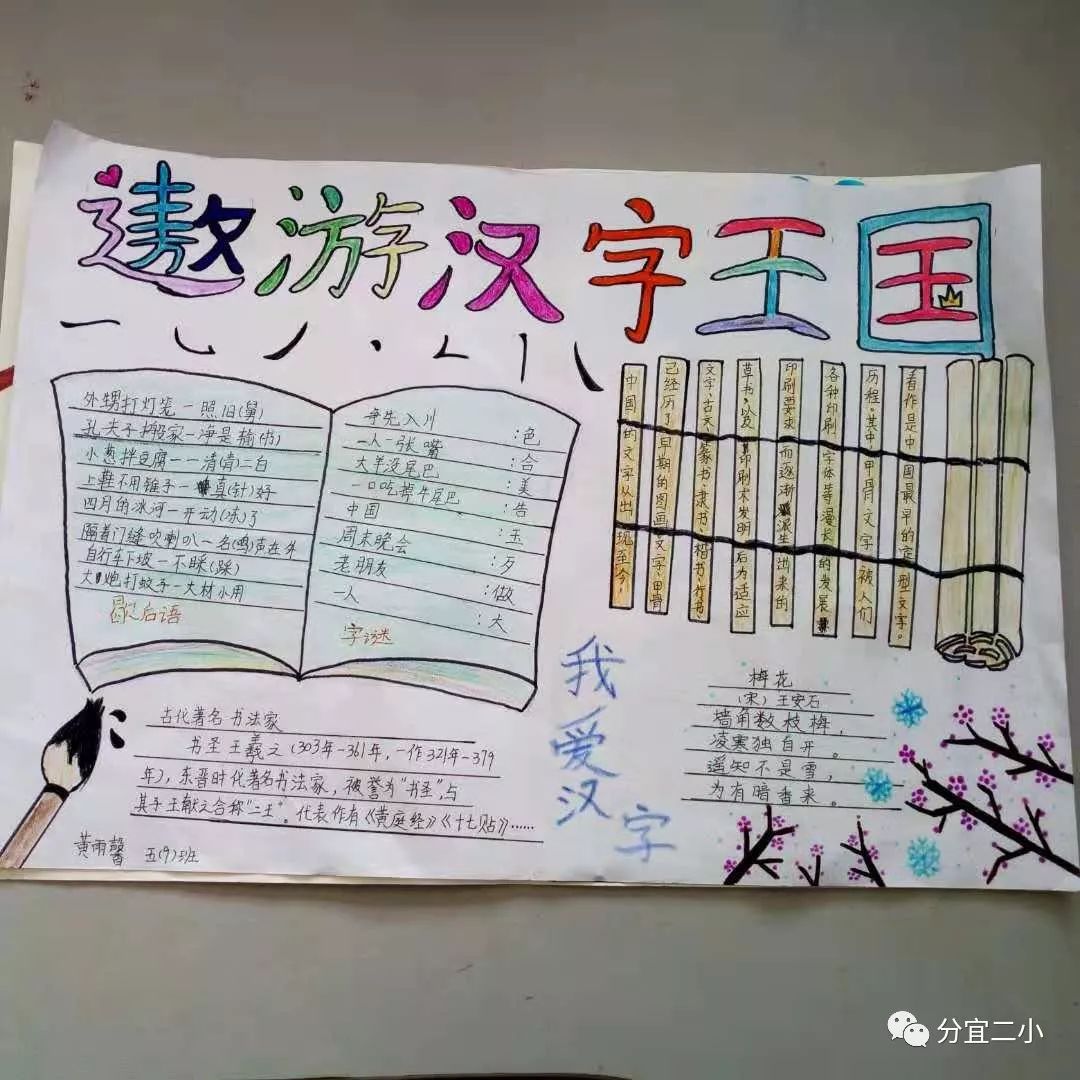 遨游汉字王国
外甥打灯笼一照旧(舅)
孔夫子搬家一净是输(书)
小葱拌豆腐一一清(青)二白
上鞋不用锥子一真(针)好
四月的冰河一开动(冻)了
隔着门缝吹喇叭一名(鸣)声在外
自行车下坡一不睬(踩)
大炮打蚊子一大材小用
歇后语
争先入川:色
一人一张嘴:合
大羊没尾巴:美
一口吃掉牛尾巴:告
中国:玉
周末晚会:歹
老朋友:做
一人:大
字谜
中国的文字从出现至今,
已经历了早期的图画文字、甲骨
文字、古文、篆书、隶书、楷书、行书、
草书,以及印刷术发明后为适应
印刷要求而逐渐派生出来的
各种印刷字体等漫长的发展
历程。其中,甲骨文字被人们
看作是中国最早的定型文字。
古代著名书法家
书圣王羲之(303年-361年,一作321年-379
年),东晋时代著名书法家,被誉为"书圣",与
其子王献之合称"二王"。代表作有《黄庭经》《十七贴》……
黄雨馨 五(9)班
我爱汉字
梅花
(宋)王安石
墙角数枝梅,
凌寒独自开。
遥知不是雪,
为有暗香来。
分宜二小